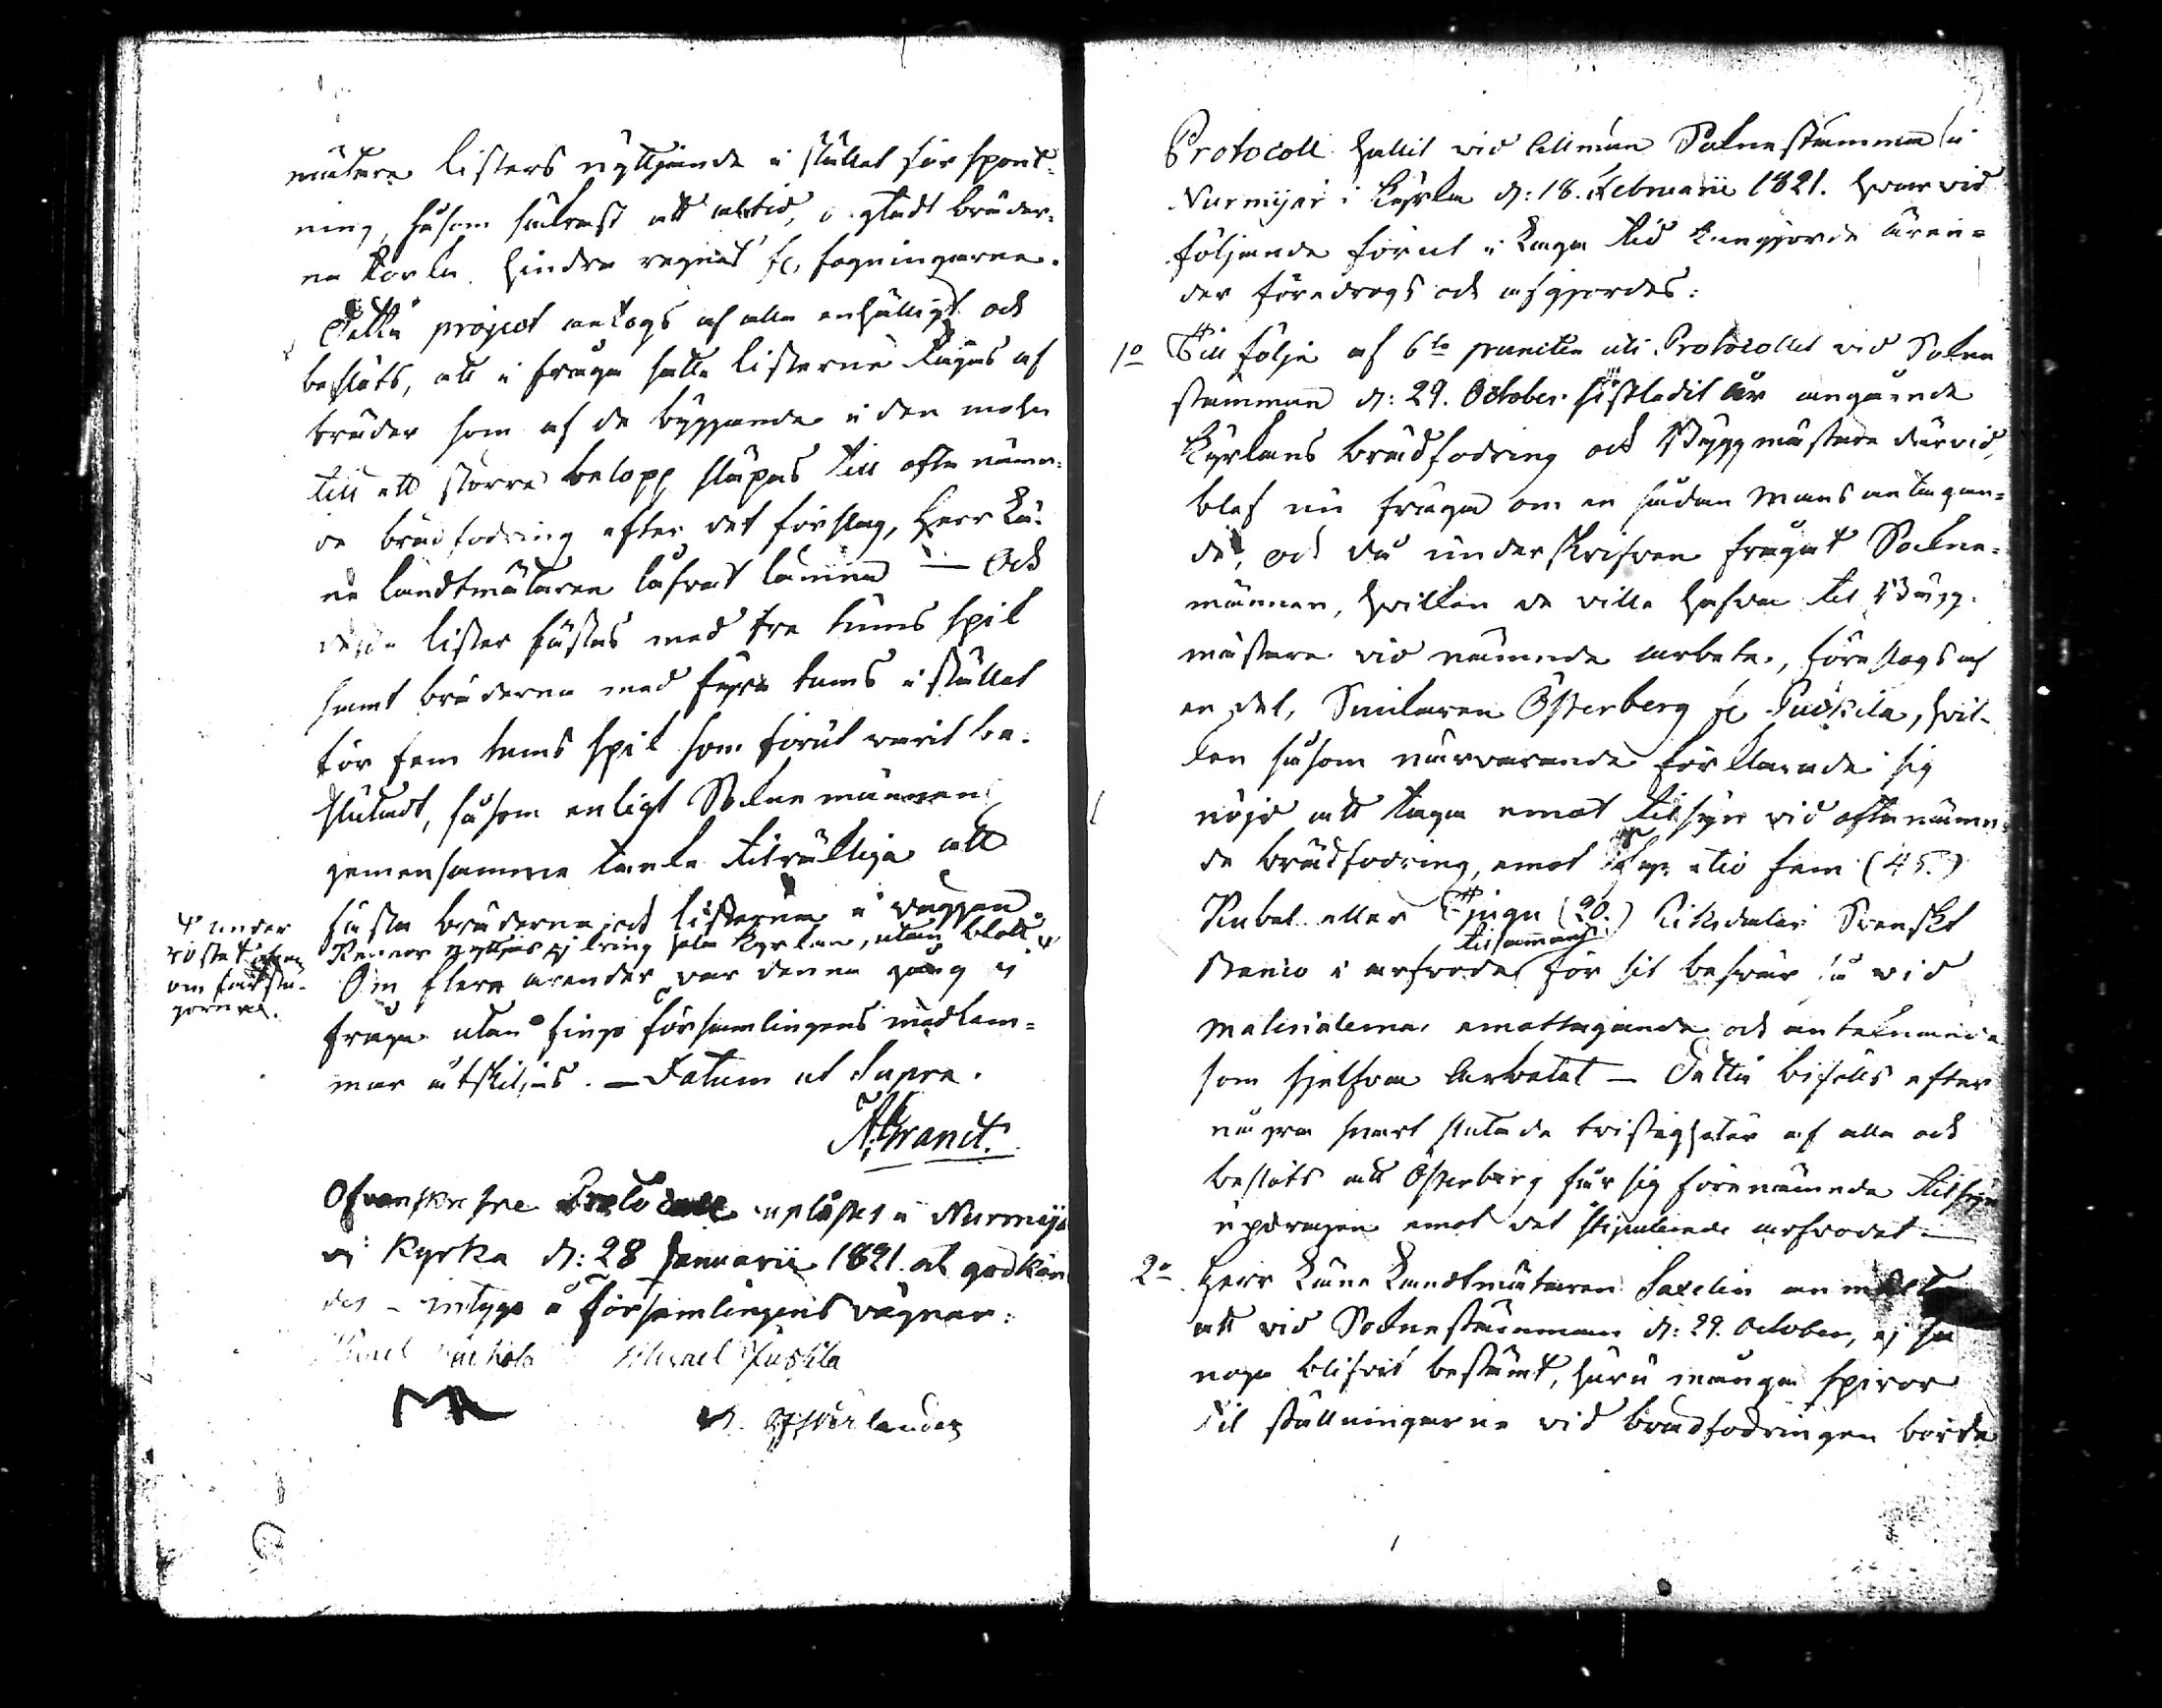 mätare listers nyttjande i stället för spont-
ning, såsom säkrast att altid, i gladt bräder-
na torka hindra regnet fr. fogningarne.
Detta project antogs af alla enhälligt och
beslöts, att i fråga satte listerne sågas af
bräder som af de byggande i den mohn
till ett större belopp släpas till ofta nämn-
de brädfodring efter det förslag, Herr Lä-
ne Landtmätaren låfvat lämna — Och
desse lister fästas med tre tums spik
samt bräderne med fyra tums i stället
för fem tums spik som förut varit be-
slutadt, såsom enligt Sockne männen
gemensamma tanke tilräckliga att
fästa bräderne och listerne i väggen
Rännor nyttjas ej kring hela kyrkan, utan blott
under
röstet ofvan
om förstu-
gorne.
Om flera ärender var denna gång ej
fråga utan fingo församlingens medlem-
mar åtskiljas. — Datum ut Supra.
A. Granct.
Ofvanskrefne Protocoll uplästes i Nurmijä
vi Kyrka d: 28 Januarii 1821. och godkän
des - intyga å församlingens vägnar:
Michael Puskila
Österlander
Protocoll hållit vid Allmän Sokne stämma i
Nurmijärvi Kyrka d: 18. Februarii 1821. hvarvid
följande förut i Laga tid kungjorde ären-
der föredrogs och afgjordes:
1o Till följe af 6te puncten uti Protocollet vid Sokne
stämman d: 29. October sistledit År angående
Kyrkans brädfodring och Byggmästare därvid,
blef nu fråga om en sådan Mans antagan-
de, och då underskrifven frågat Sockne-
männen, hvilken de ville hafva til Bygg-
mästare vid nämnde arbete, föreslogs af
en del, Snikaren Österberg fr. Puskila, hvil-
ken såsom närvarande förklarade sig
nöjd att taga emot tilsyn vid oftanämn-
de brädfodring, emot Fyratio fem (45.)
Rubel eller Tjugu (20.) Riksdaler Svenskt
Banco i arfvode tilsammans för sit besvär så vid
Materialernas emottagande och antecknande
som sjelfva Arbetet — Detta bifölls efter
några snart slutade tvistigheter af alla och
beslöts att Österberg får sig förenämnda tilsyn
updragen emot det stipulerade arfvodet —
2o Herr Läne Landtmätaren Saxelin anmälte
att vid Socknestämman d: 29. October, ej så
noga blifvit bestämt, huru många spiror
til ställningarne vid brädfodringen borde